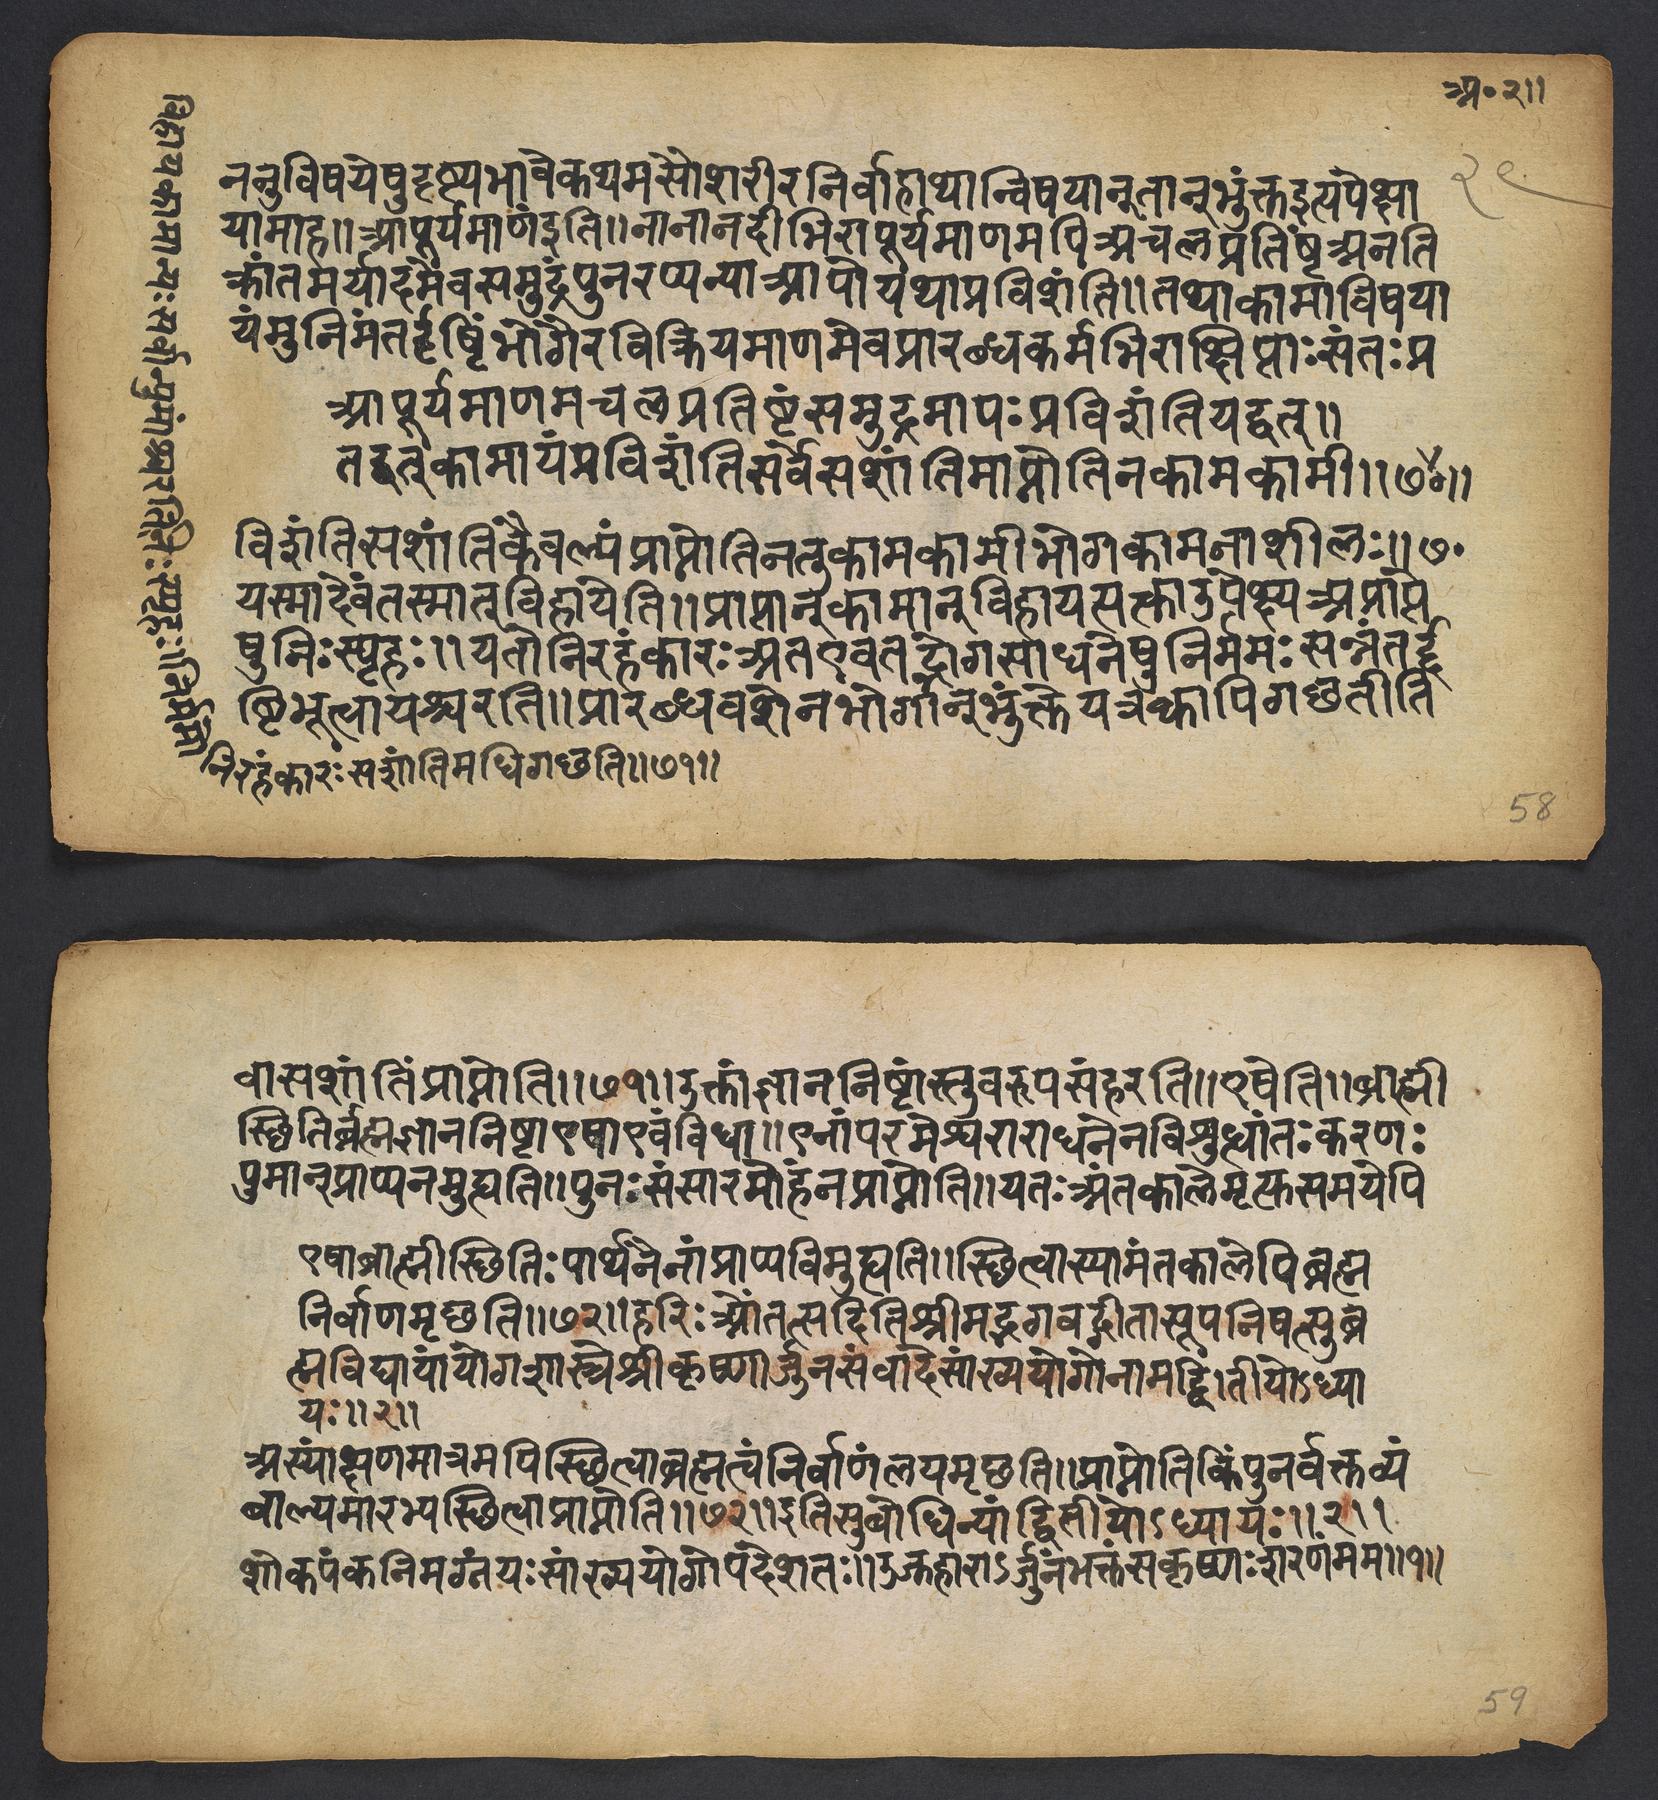 अ॰२॥
२९
ननुविषयेषुदृष्ट्यभावेकथमसौशरीरनिर्वाहाथान्विषयानूतानुभुंक्तइत्यपेक्षा
यामाह॥आपूर्यमाणंइति॥नानानदीभिरापूर्यमाणमपिअचलप्रतिष्ठंअनति
क्रांतमर्यादमेवसमुद्रंपुनरप्यन्याआपोयथाप्रविशंति॥तथाकामाविषया
यंमुनिमंतर्दृष्टिंभोगैरविक्रियमाणमेवप्रारब्धकर्मभिराक्षिप्ताःसंतःप्र
आपूर्यमाणमचलप्रतिष्टंसमुद्रमापःप्रविशंतियद्वत्॥
तद्वत्कामायंप्रविशंतिसर्वेसशांतिमाप्नोतिनकामकामी॥७०॥
विशंतिसशांतिंकैवल्यंप्राप्नोतिनतुकामकामीभोगकामनाशीलः॥७॰
यस्मादेवंतस्मात्विहायेति॥प्राप्तान्कामान्विहायसत्कादुपेक्ष्यअप्राप्ते
षुनिःस्पृहः॥यतोनिरहंकारःअतएवतद्भोगसाधनेषुनिर्ममःसन्नंतर्दृ
ष्टिभूत्वायश्चरति॥प्रारब्धवशेनभोगान्भुंक्तेयत्रक्वापिगछतीति
विहायकामान्यःसर्वान्पुमांश्चरतिनिःस्पृहः॥निर्ममो
निरहंकारःसशांतिमधिगछति॥७१॥
58
वासशांतिंप्राप्नोति॥७१॥उक्तांज्ञाननिष्टांस्तुवरुपसंहरति॥एषेति॥ब्राह्मी
स्छितिर्ब्रह्मज्ञाननिष्टाएषाएवंविधा॥एनांपरमेश्चराराधनेनविशुध्यांतःकरणः
पुमान्प्राप्यनमुह्यति॥पुनःसंसारमोहंनप्राप्नोति॥यतःअंतकालेमृत्कसमयेपि
एषाब्राह्मीस्छितिःपार्थनैनांप्राप्यविमुह्यति॥स्छित्वास्यामंतकालेपिब्रह्म
निर्वाणमृछति॥७२॥हरिःओंतत्सदितिश्रीमद्भगवद्गीतासूपनिषत्सुब्र
ह्मविद्यायांयोगशास्त्रेश्रीकृष्णार्जुनसंवादेसांख्ययोगोनामद्विंतीयोऽध्या
यः॥२॥
अस्यांक्षणमात्रमपिस्छित्वाब्रह्मत्वंनिर्वाणंलयमृछति॥प्राप्नोतिकिंपुनर्वक्तव्यं
बाल्यमारभ्यस्छित्वाप्राप्नोति॥७२॥इतिसुबोधिन्यांद्वितीयोऽध्यायः॥२॥
शोकपंकनिमग्नंयःसांख्ययोगोपदेशतः॥उज्जहाराऽर्जुनंभक्तंसकृष्णःशरणंमम॥१॥
59